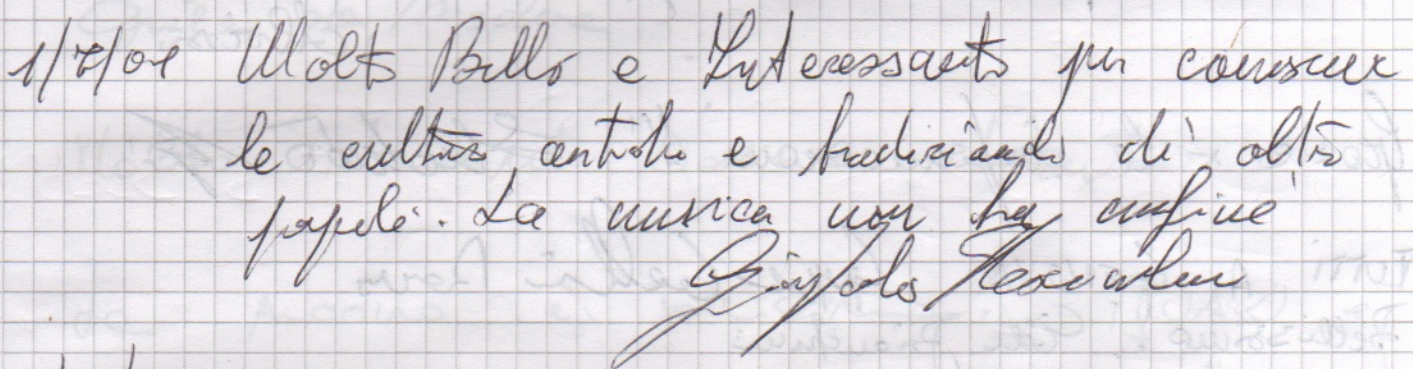 1/7/01 Molto Bello e Interessante per conoscere
le culture antiche e tradizionali di altri
popoli. La musica non ha confini